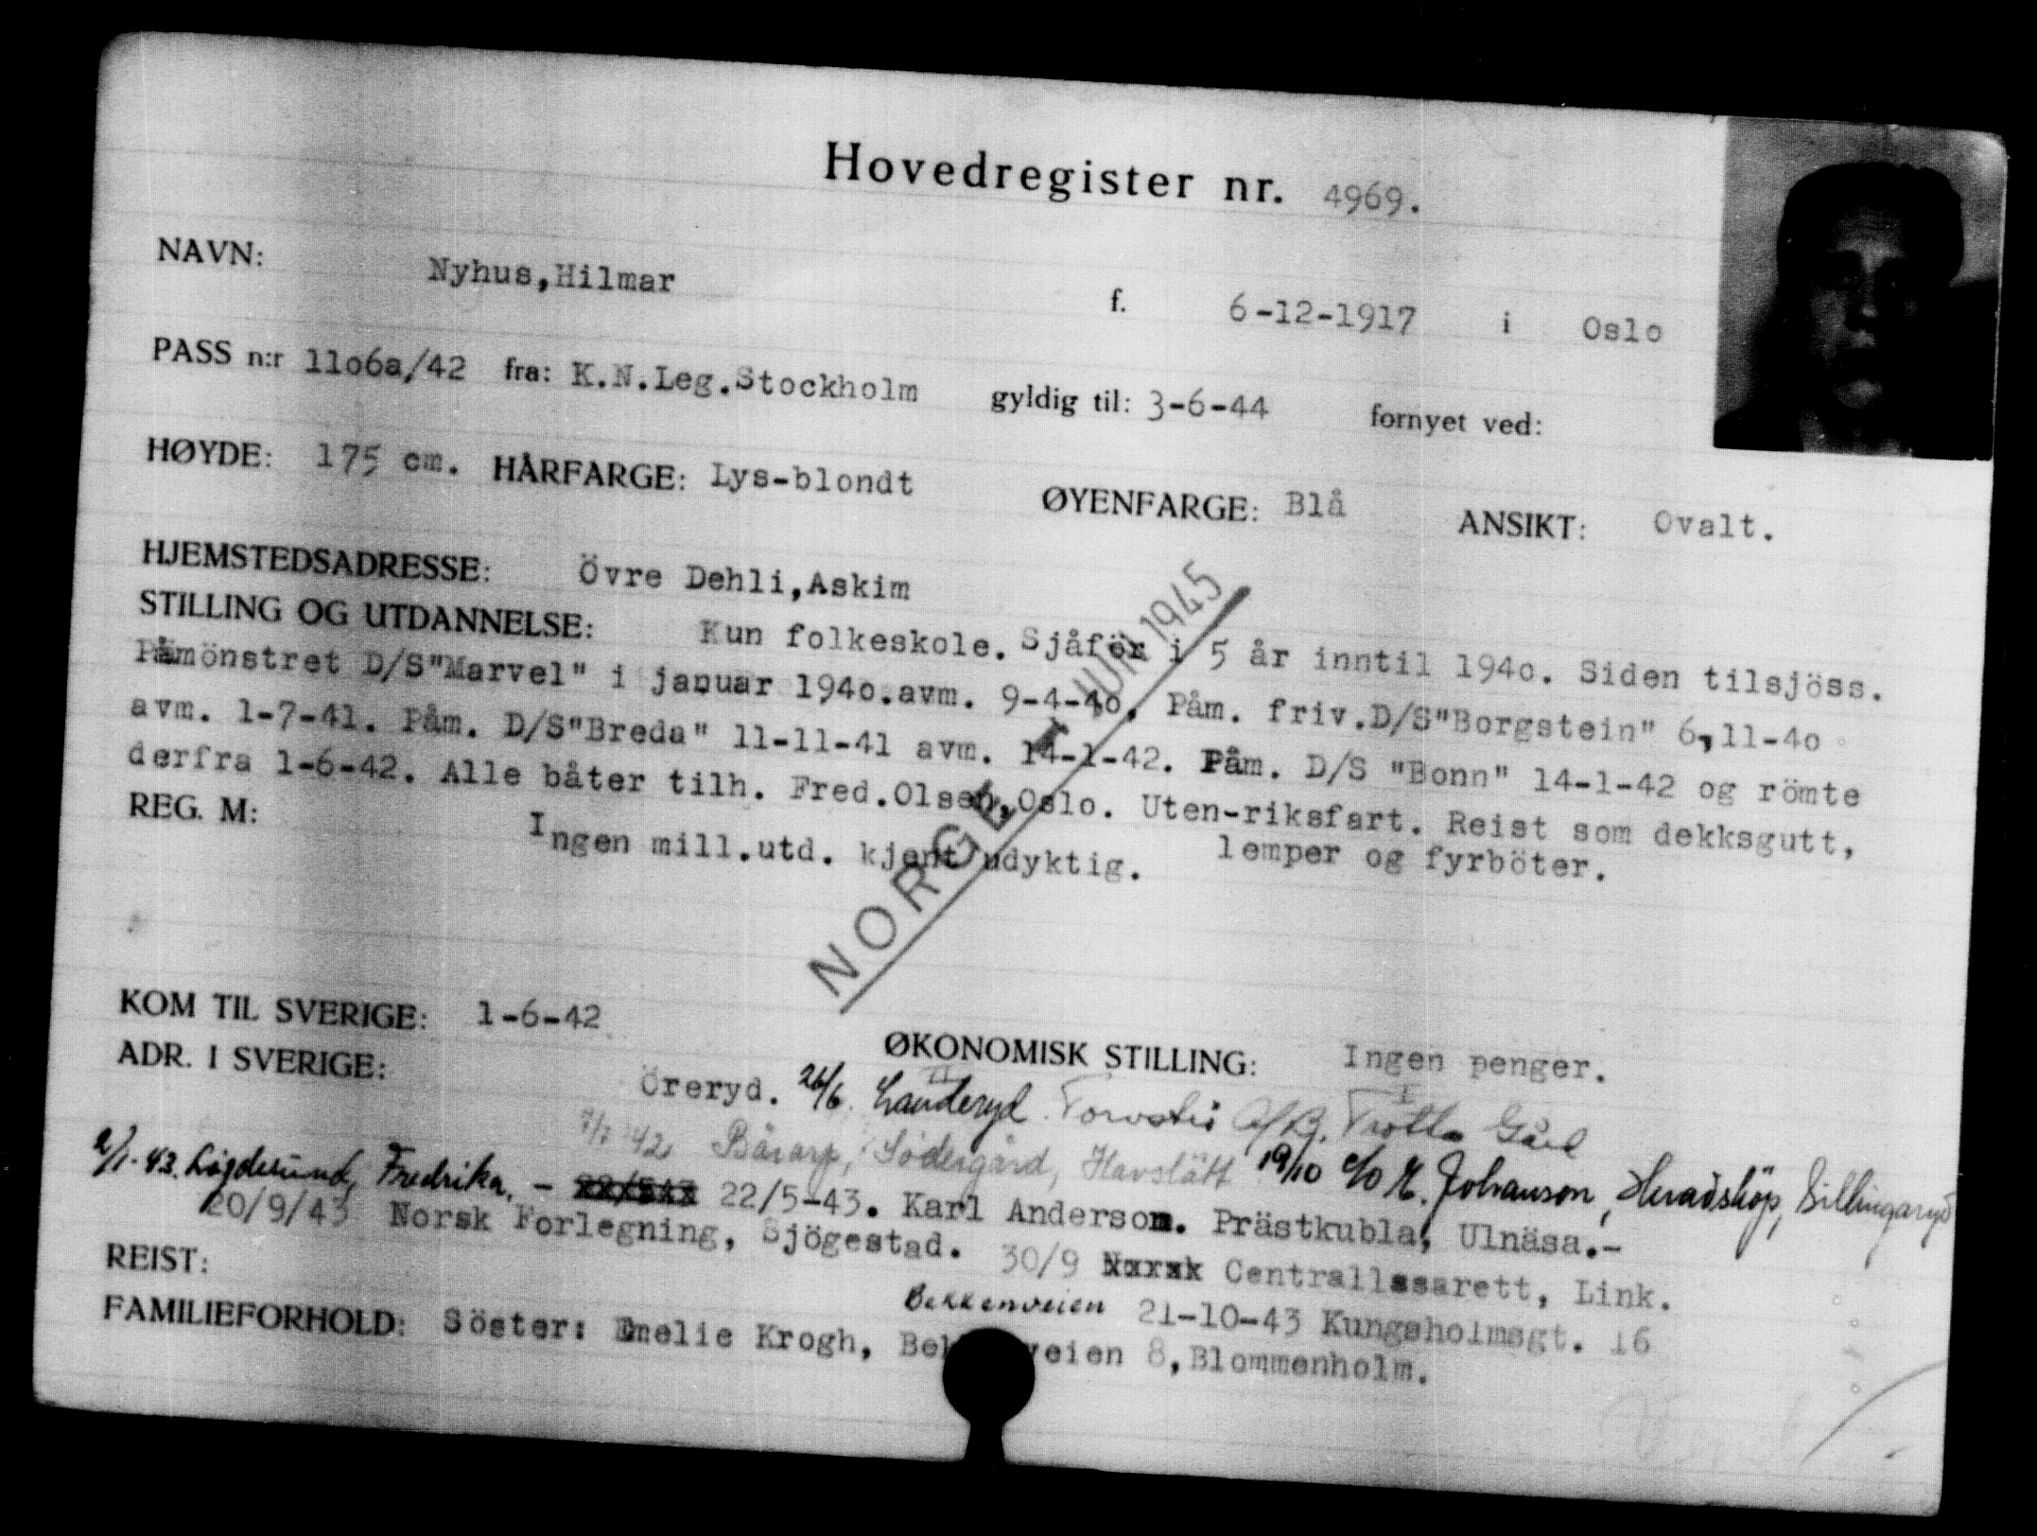 Hovedregister nr. 4969.
NAVN: Nyhus,Hilmar f. 6-12-1917 i Oslo
PASS n:r 11o6a/42 fra: K.N.Leg.Stockholm gyldig til: 3-6-44 fornyet ved:
HØYDE: 175 cm. HÅRFARGE: Lys-blondt ØYENFARGE: Blå ANSIKT: Ovalt.
HJEMSTEDSADRESSE: Övre Dehli,Askim
STILLING OG UTDANNELSE: Kun folkeskole. Sjåför i 5 år inntil 194o. Siden tilsjöss.
Påmönstret D/S"Marvel" i januar 194o.avm. 9-4-4o, Påm. friv.D/S"Borgstein" 6,11-4o
avm. 1-7-41. Påm. D/S"Breda" 11-11-41 avm. 14-1-42. Påm. D/S "Bonn" 14-1-42 og römte
derfra 1-6-42. Alle båter tilh. Fred.Olsen,Oslo. Uten-riksfart. Reist som dekksgutt,
lemper og fyrböter.
REG. M: Ingen mill.utd. kjent udyktig.
NORGE 1 JUN 1945
KOM TIL SVERIGE: 1-6-42 ØKONOMISK STILLING: Ingen penger.
ADR. I SVERIGE: Öreryd. 26/6. Landeryd
7/7 42 Bårarp, Södergård, Havslätt 19/10 c/o K. Johanson,
2/1-43. Lögdesund, Fredrika. - 22/5-43. Karl Anderson. Prästkubla, Ulnäsa.-
20/9/43 Norsk Forlegning, Sjögestad. 30/9 Centrallasarett, Link.
REIST: Bekkenveien 21-10-43 Kungsholmsgt. 16
FAMILIEFORHOLD: Söster: Emelie Krogh, veien 8,Blommenholm.